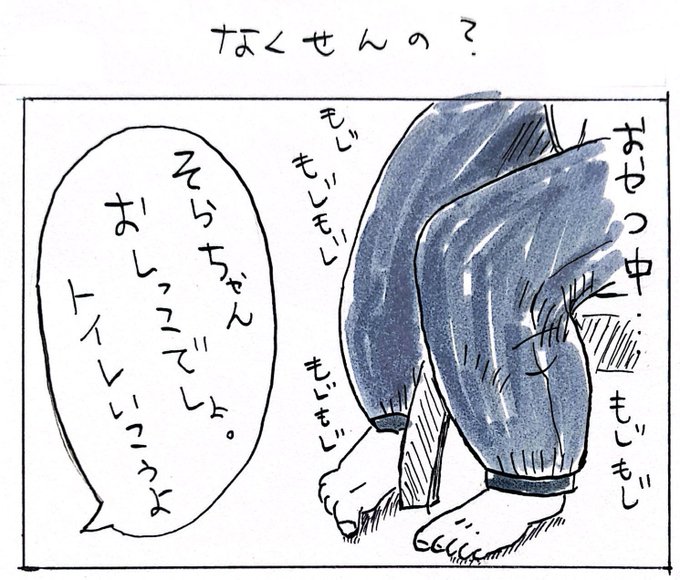 なくせんの？
おやつ中…
もじ
もじもじ
もじもじ
もじもじ
そらちゃん
おしっこでしょ。
トイレいこうよ